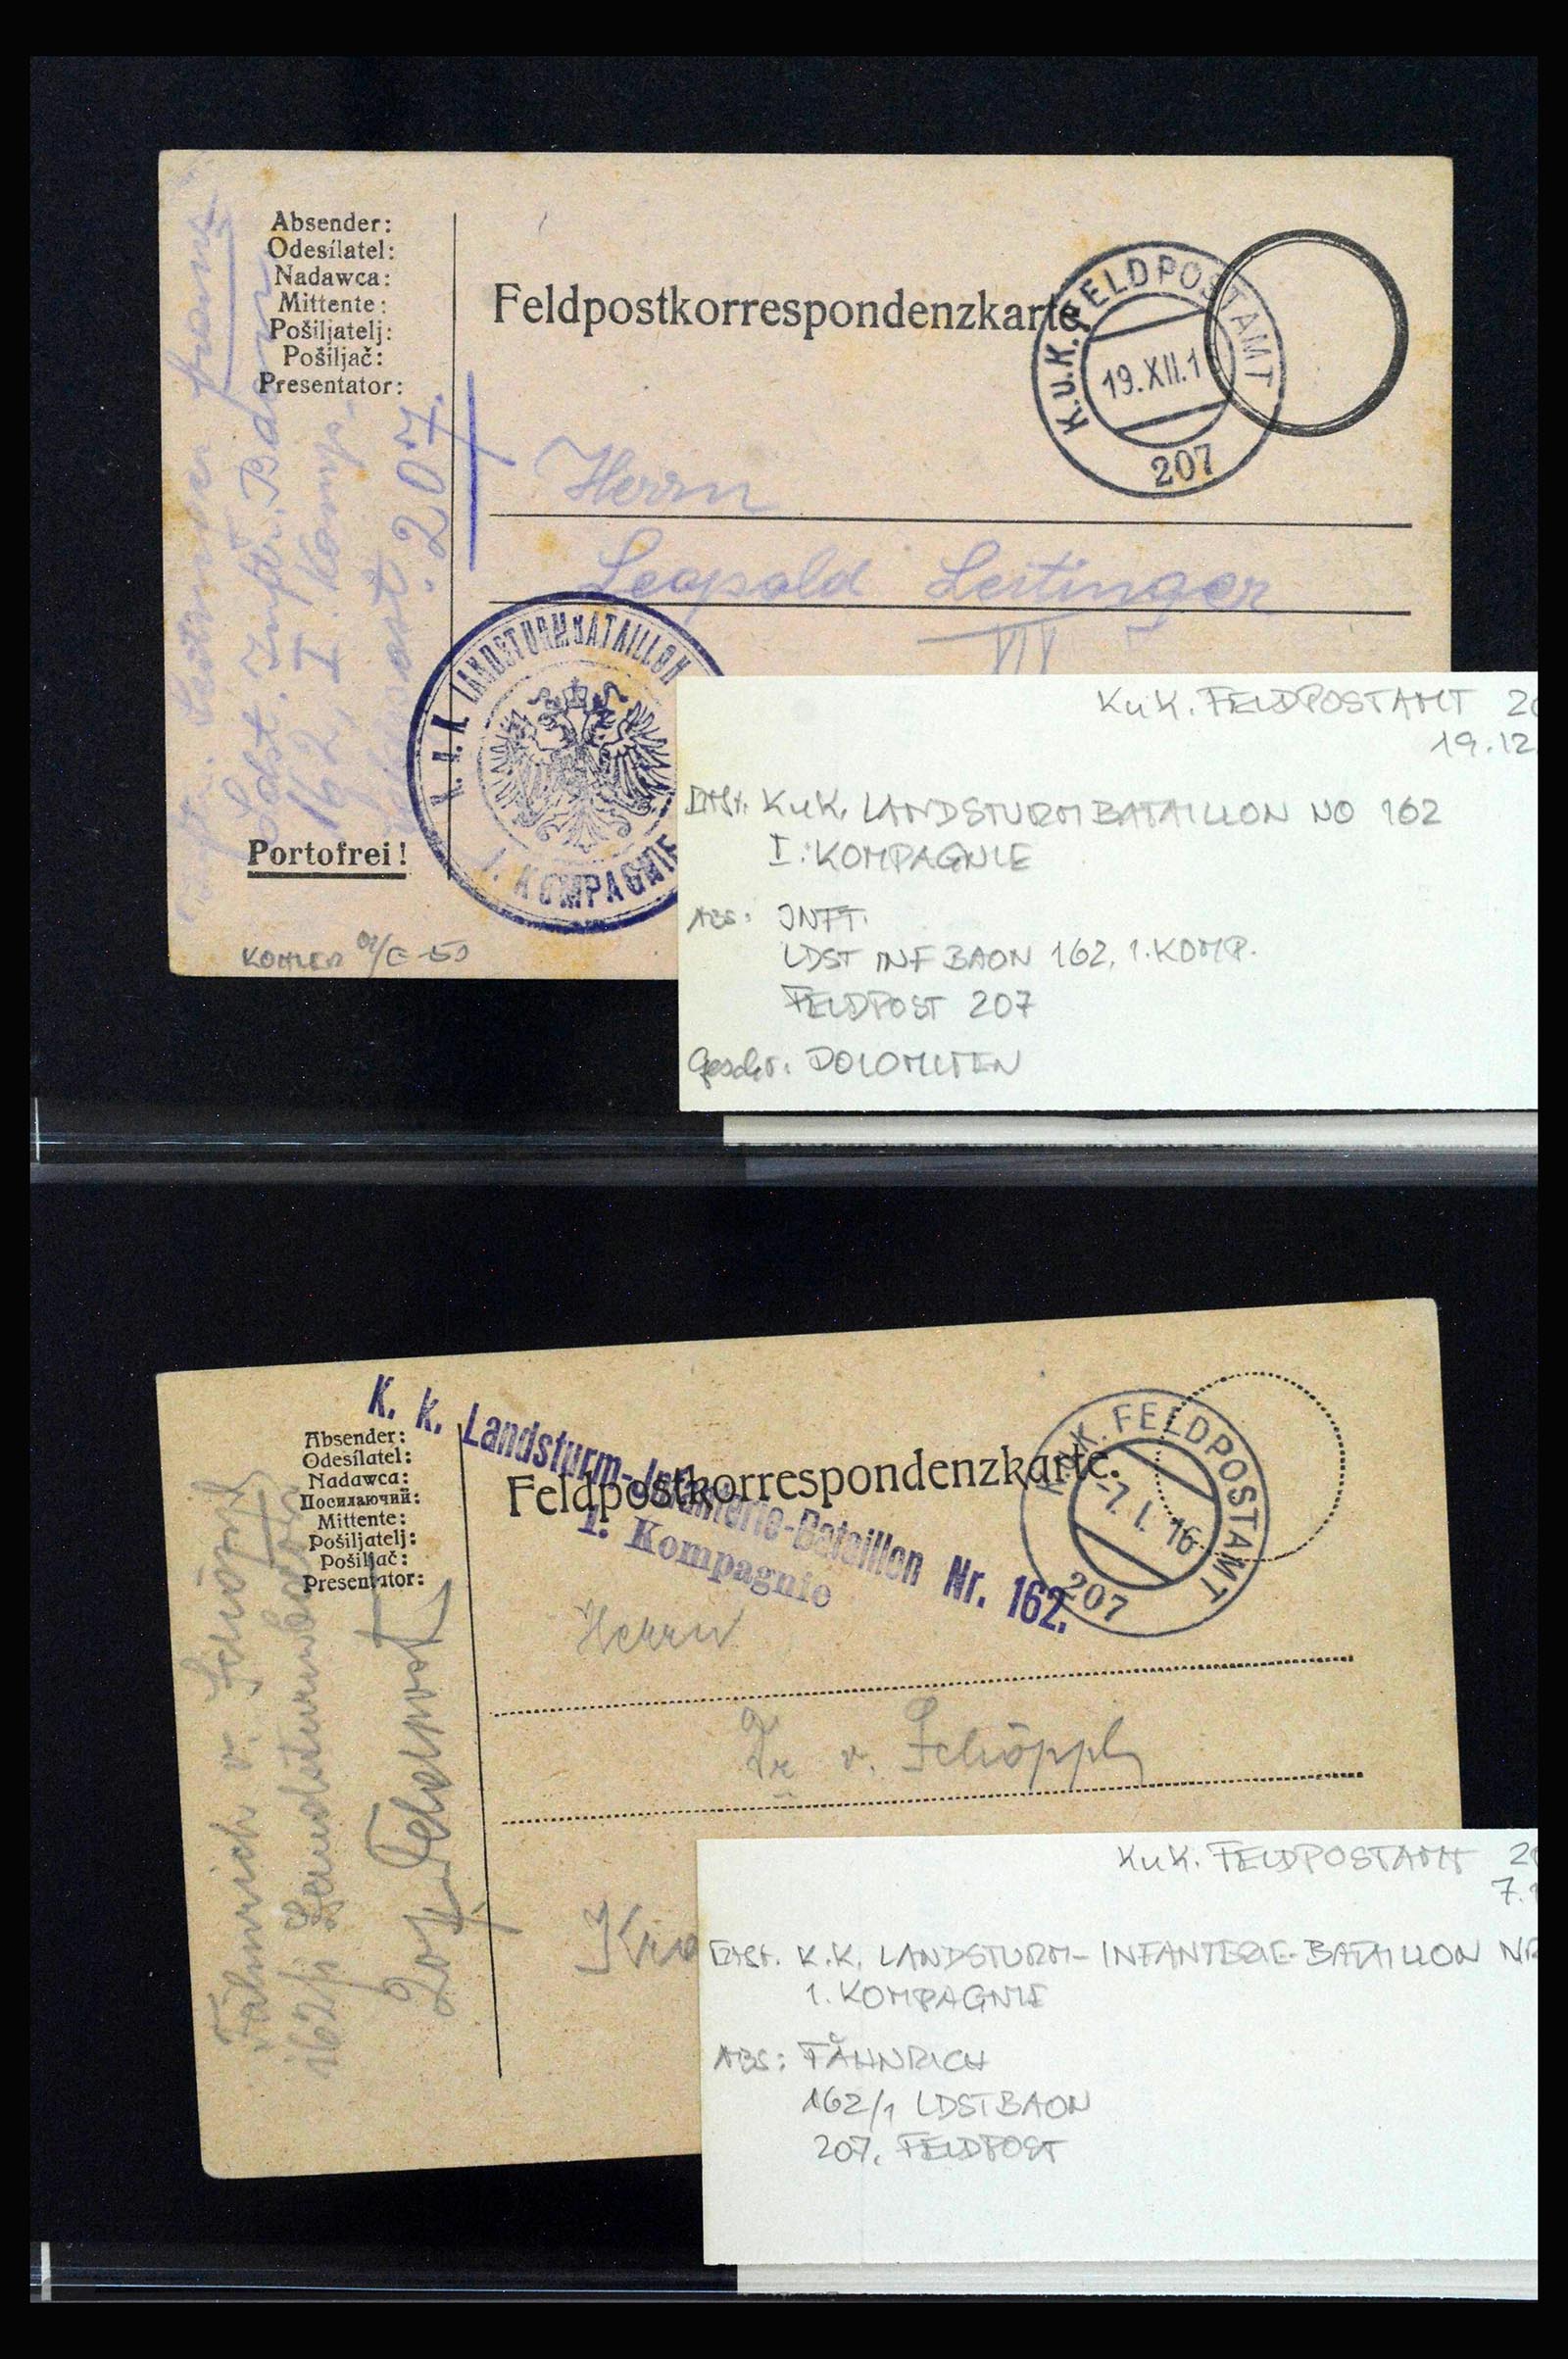 Absender:
Odesílatel:
Nadawca:
Mittente:
Pošiljatelj:
Pošiljač:
Presentator:
Feldpostkorrespondenzkarte.
K.u.K. FELDPOSTAMT
19.XII.1
207
Herrn
Leopold Leitinger
XIV
Leitinger Franz
Ldst. Inftr. Baon
162, I. Komp.
Feldpost 207.
K.u.K. LANDSTURMBATAILLON
I. KOMPAGNIE
Portofrei!
KuK. FELDPOSTAMT 20
19.12
KuK. LANDSTURMBATAILLON NO 162
I. KOMPAGNIE
ABS: INFT.
LDST INF BAON 162, 1. KOMP.
FELDPOST 207
Geschr: DOLOMITEN
K. k. Landsturm-Infanterie-Bataillon Nr. 162.
1. Kompagnie
Absender:
Odesílatel:
Nadawca:
Посилаючий:
Mittente:
Pošiljatelj:
Pošiljač:
Presentator:
Feldpostkorrespondenzkarte.
K.u.K. FELDPOSTAMT
-7. I. 16
207
Herrn
Dr v. Schöppl
Fähnrich v. Schöppl
162/1 Landsturmbaon
207 Feldpost
KuK. FELDPOSTAMT 20
7.1
K.K. LANDSTURM-INFANTERIE-BATAILLON NR
1. KOMPAGNIE
ABS: FÄHNRICH
162/1 LDSTBAON
207, FELDPOST